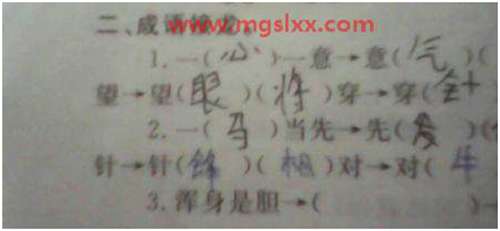 www.mgslxx.com
二、成语接龙。
1.一(心)一意→意(气)(
望→望(眼)(将)穿→穿(针
2.一(马)当先→先(发)(
针→针(锋)(相)对→对(牛
3.浑身是胆→(